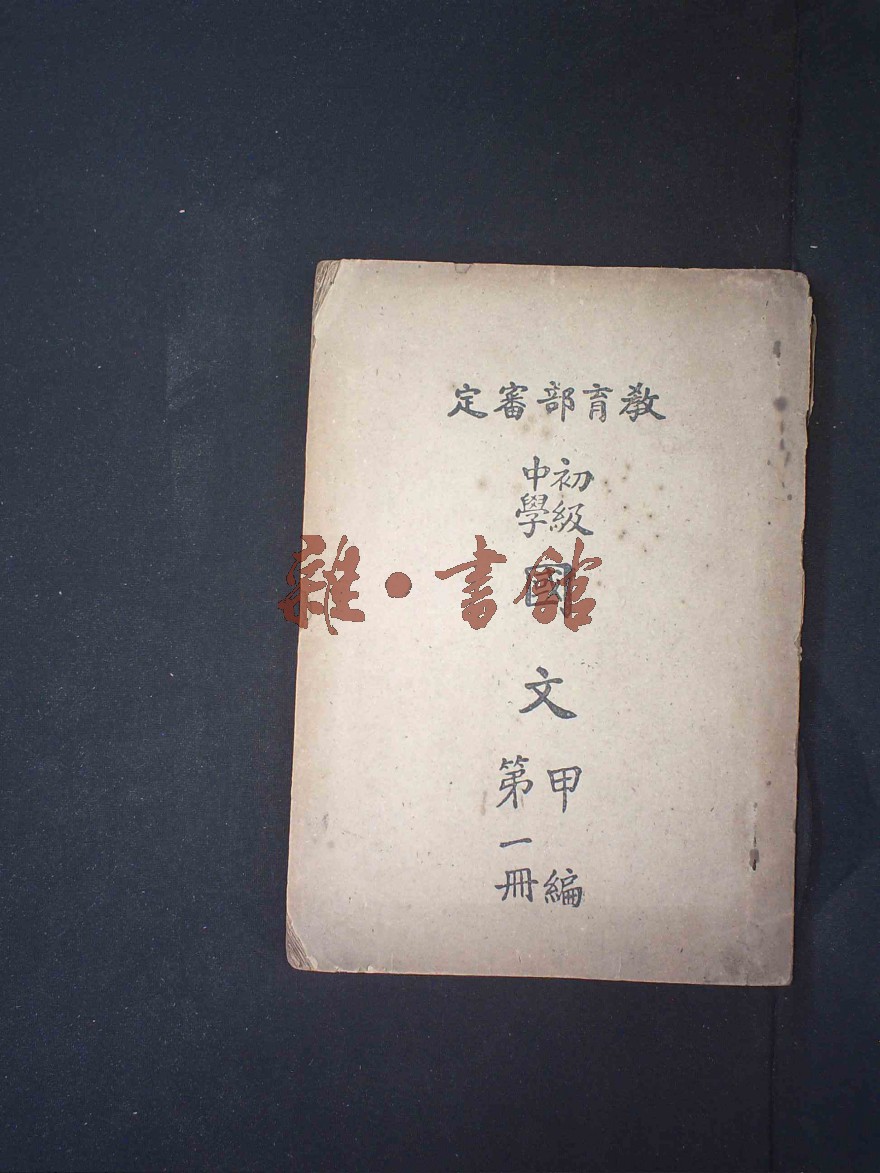 教育部審定
初級
中學
國文
甲編
第一冊
雜·書館